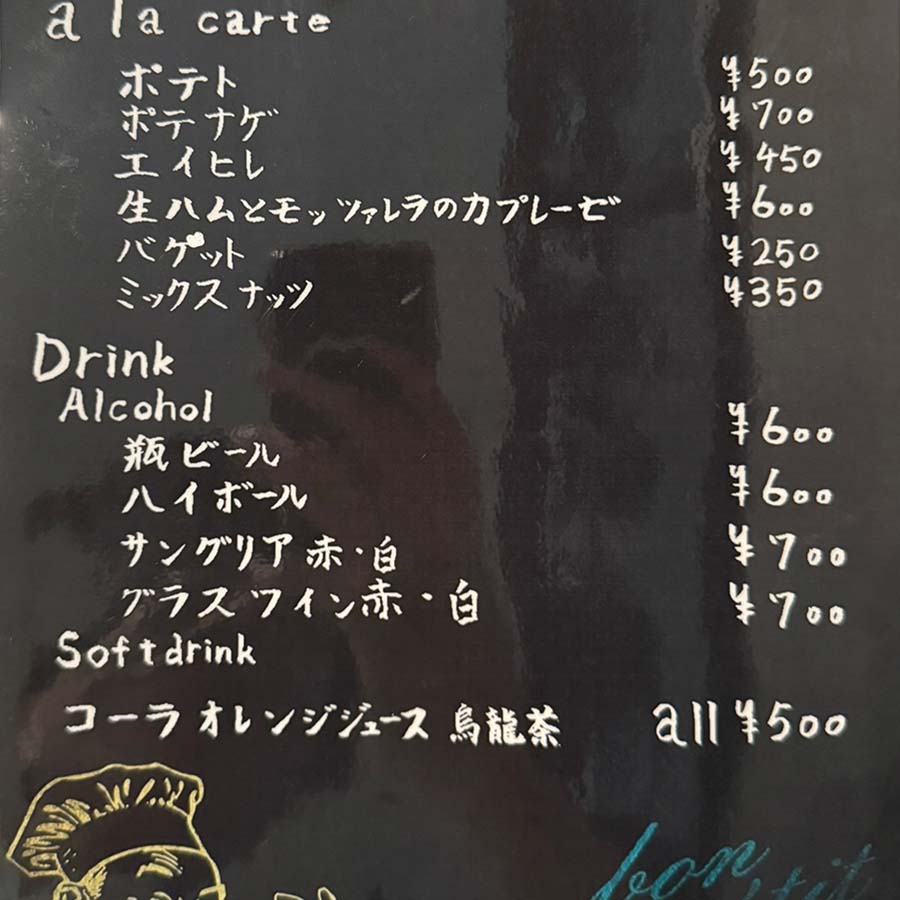 a la carte
ポテト ¥500
ポテナゲ ¥700
エイヒレ ¥450
生ハムとモッツァレラのカプレーゼ ¥600
バゲット ¥250
ミックスナッツ ¥350
Drink
Alcohol
瓶ビール ¥600
ハイボール ¥600
サングリア 赤・白 ¥700
グラスワイン赤・白 ¥700
Softdrink
コーラ オレンジジュース 烏龍茶 all ¥500
bon